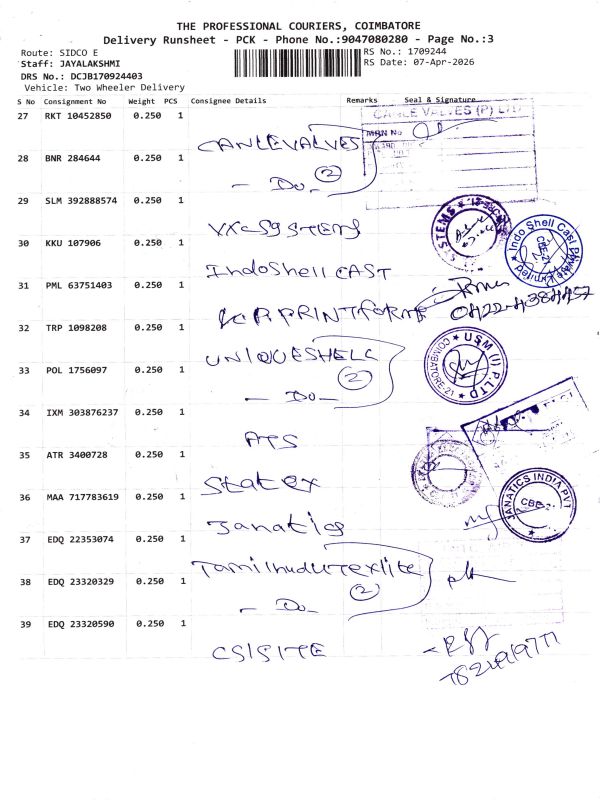 THE PROFESSIONAL COURIERS, COIMBATORE
Delivery Runsheet - PCK - Phone No.:9047080280 - Page No.:3
Route: SIDCO E
RS No.: 1709244
Staff: JAYALAKSHMI
RS Date: 07-Apr-2026
DRS No.: DCJB170924403
Vehicle: Two Wheeler Delivery
S No Consignment No Weight PCS Consignee Details Remarks Seal & Signature
27 RKT 10452850 0.250 1 CANLEVALVES
28 BNR 284644 0.250 1 - Do - 2
29 SLM 392888574 0.250 1
30 KKU 107906 0.250 1 IndoShell CAST
31 PML 63751403 0.250 1
32 TRP 1098208 0.250 1 UNIQUESHELL
33 POL 1756097 0.250 1 - Do - 2
34 IXM 303876237 0.250 1
35 ATR 3400728 0.250 1 Statex
36 MAA 717783619 0.250 1 Janatics
37 EDQ 22353074 0.250 1
38 EDQ 23320329 0.250 1 - Do - 2
39 EDQ 23320590 0.250 1 CSISITE
USM (I) P LTD
COIMBATORE-21
JANATICS INDIA PVT